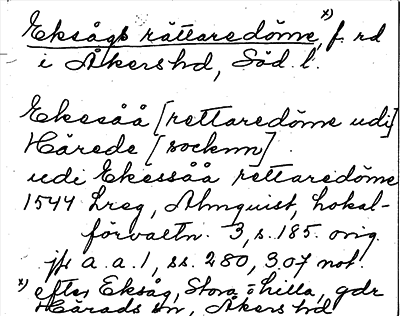 Eksågs rättaredöme,ˣ⁾ f. rd
i Åkers hd, Söd. l.
Ekesåå [rettaredöme udi]
Hårede [socknn]
udi Ekessåå rettaredöme
1544 Lreg, Almquist, Lokal-
förvaltn. 3, s. 185. orig.
jfr a. a. 1, ss. 280, 307 not.
x) efter Eksåg, Stora o Lilla, gdr
Härads sn, Åkers hd